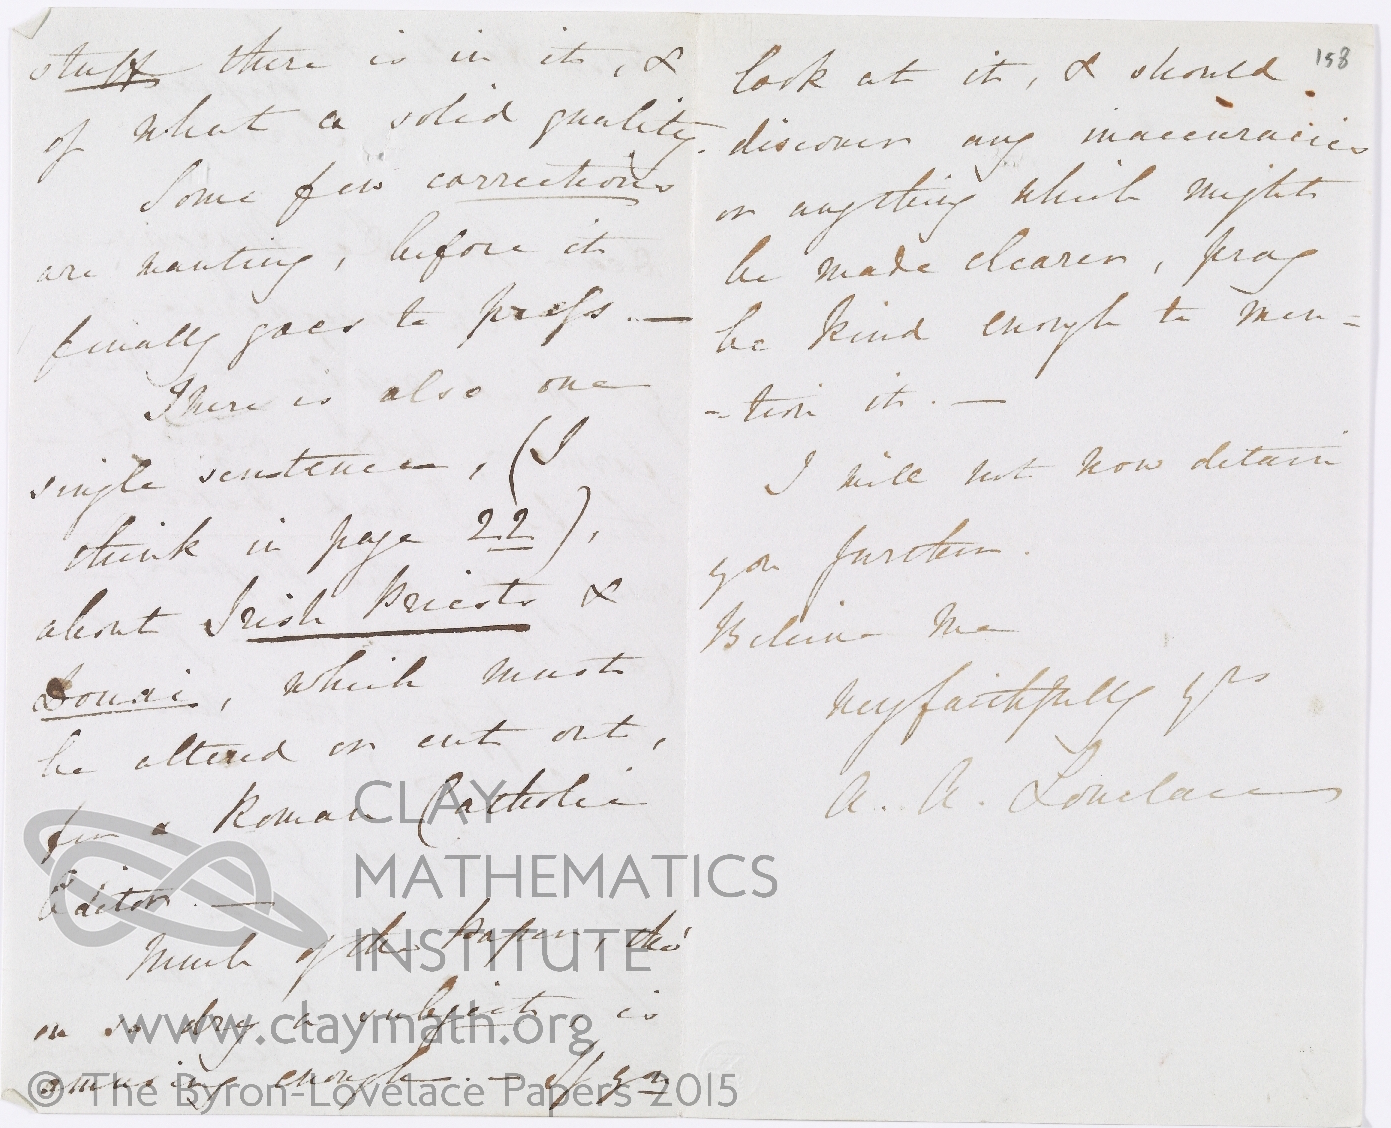 stuff there is in it, &
of what a solid quality.
Some few corrections
are wanting, before it
finally goes to press. —
There is also one
single sentence, (I
think in page 22),
about Irish Priests &
Douai, which must
be altered or cut out,
for a Roman Catholic
Editor. —
Much of the Paper, tho'
on so dry a subject, is
amusing enough. — If you
158
look at it, & should
discover any inaccuracies
or anything which might
be made clearer, pray
be kind enough to men=
=tion it. —
I will not now detain
you further.
Believe me
very faithfully yrs
A. A. Lovelace
CLAY
MATHEMATICS
INSTITUTE
www.claymath.org
© The Byron-Lovelace Papers 2015